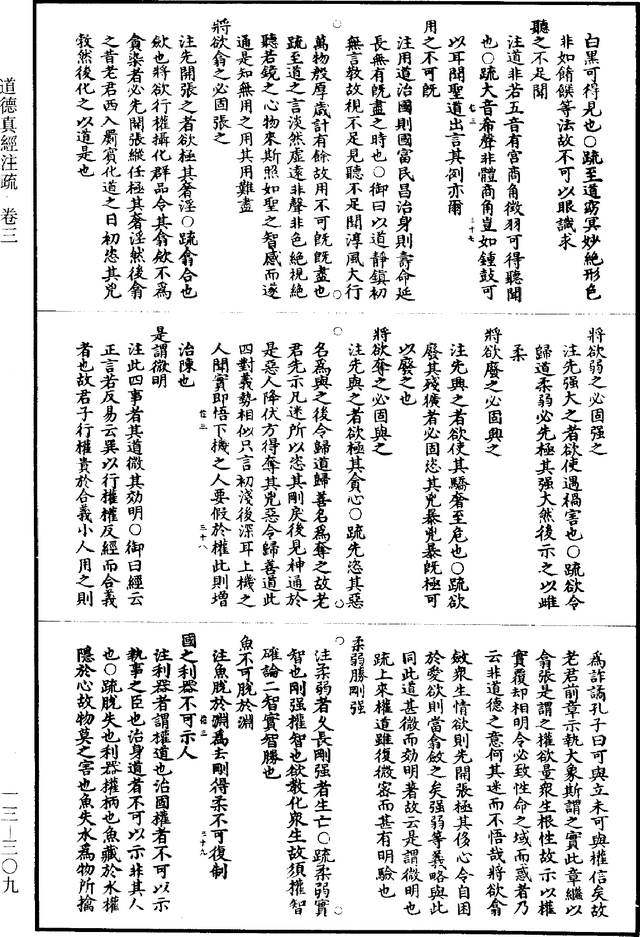 白黑可得見也○疏至道窈冥妙絶形色
非如餚饌等法故不可以眼識求
聽之不足聞
注道非若五音有宫商角徵羽可得聽聞
也○疏大音希聲非體商角豈如鍾鼓可
以耳聞聖道出言其例亦爾
用之不可既
注用道治國則國富民昌治身則壽命延
長無有既盡之時也○御曰以道靜鎮初
無言教故視不足見聽不足聞淳風大行
萬物殷厚歲計有餘故用不可既既盡也
疏至道之言淡然虚遠非聲非色絶視絶
聽若鏡之心物來斯照如聖之智感而遂
通是知無用之用其用難盡
將欲翕之必固張之
注先開張之者欲極其奢淫○疏翕合也
歛也將欲行權攝化羣品令其翕歛不爲
貪染者必先開張縱任極其奢淫然後翕
之昔老君西入罽賓化道之日初恣其兇
敎然後化之以道是也
將欲弱之必固强之
注先强大之者欲使遇禍害也○疏欲令
歸道柔弱必先極其强大然後示之以雌
柔
將欲廢之必固興之
注先興之者欲使其驕奢至危也○疏欲
廢其殘獷者必固恣其兇暴兇暴既極可
以廢之也
將欲奪之必固與之
注先與之者欲極其貪心○疏先恣其惡
名爲與之後令歸道歸善名爲奪之故老
君先示凡迷所以恣其剛戾後見神通於
是惡人降伏方得奪其兇惡令歸善道此
四對義勢相似只言初淺後深耳上機之
人聞實即悟下機之人要假於權此則增
治陳也
是謂微明
注此四事者其道微其効明○御曰經云
正言若反易云巽以行權權反經而合義
者也故君子行權貴於合義小人用之則
爲詐譎孔子曰可與立未可與權信矣故
老君前章示執大象斯謂之實此章繼以
翕張是謂之權欲量衆生根性故示以權
實覆却相明令必致性命之域而惑者乃
云非道德之意何其迷而不悟哉將欲翕
歛衆生情欲則先開張極其侈心令自困
於愛欲則當翕歛之矣强弱等義略與此
同此道甚微而効明著故云是謂微明也
疏上來權道雖復微密而甚有明驗也
柔弱勝剛强
注柔弱者久長剛强者生亡○疏柔弱實
智也剛强權智也欲敎化衆生故須權智
確論二智實智勝也
魚不可脱於淵
注魚脱於淵爲去剛得柔不可復制
國之利器不可示人
注利器者謂權道也治國權者不可以示
執事之臣也治身道者不可以示非其人
也○疏脱失也利器權柄也魚藏於水權
隱於心故物莫之害也魚失水爲物所擒
道德真經注疏 卷三
一三—三〇九